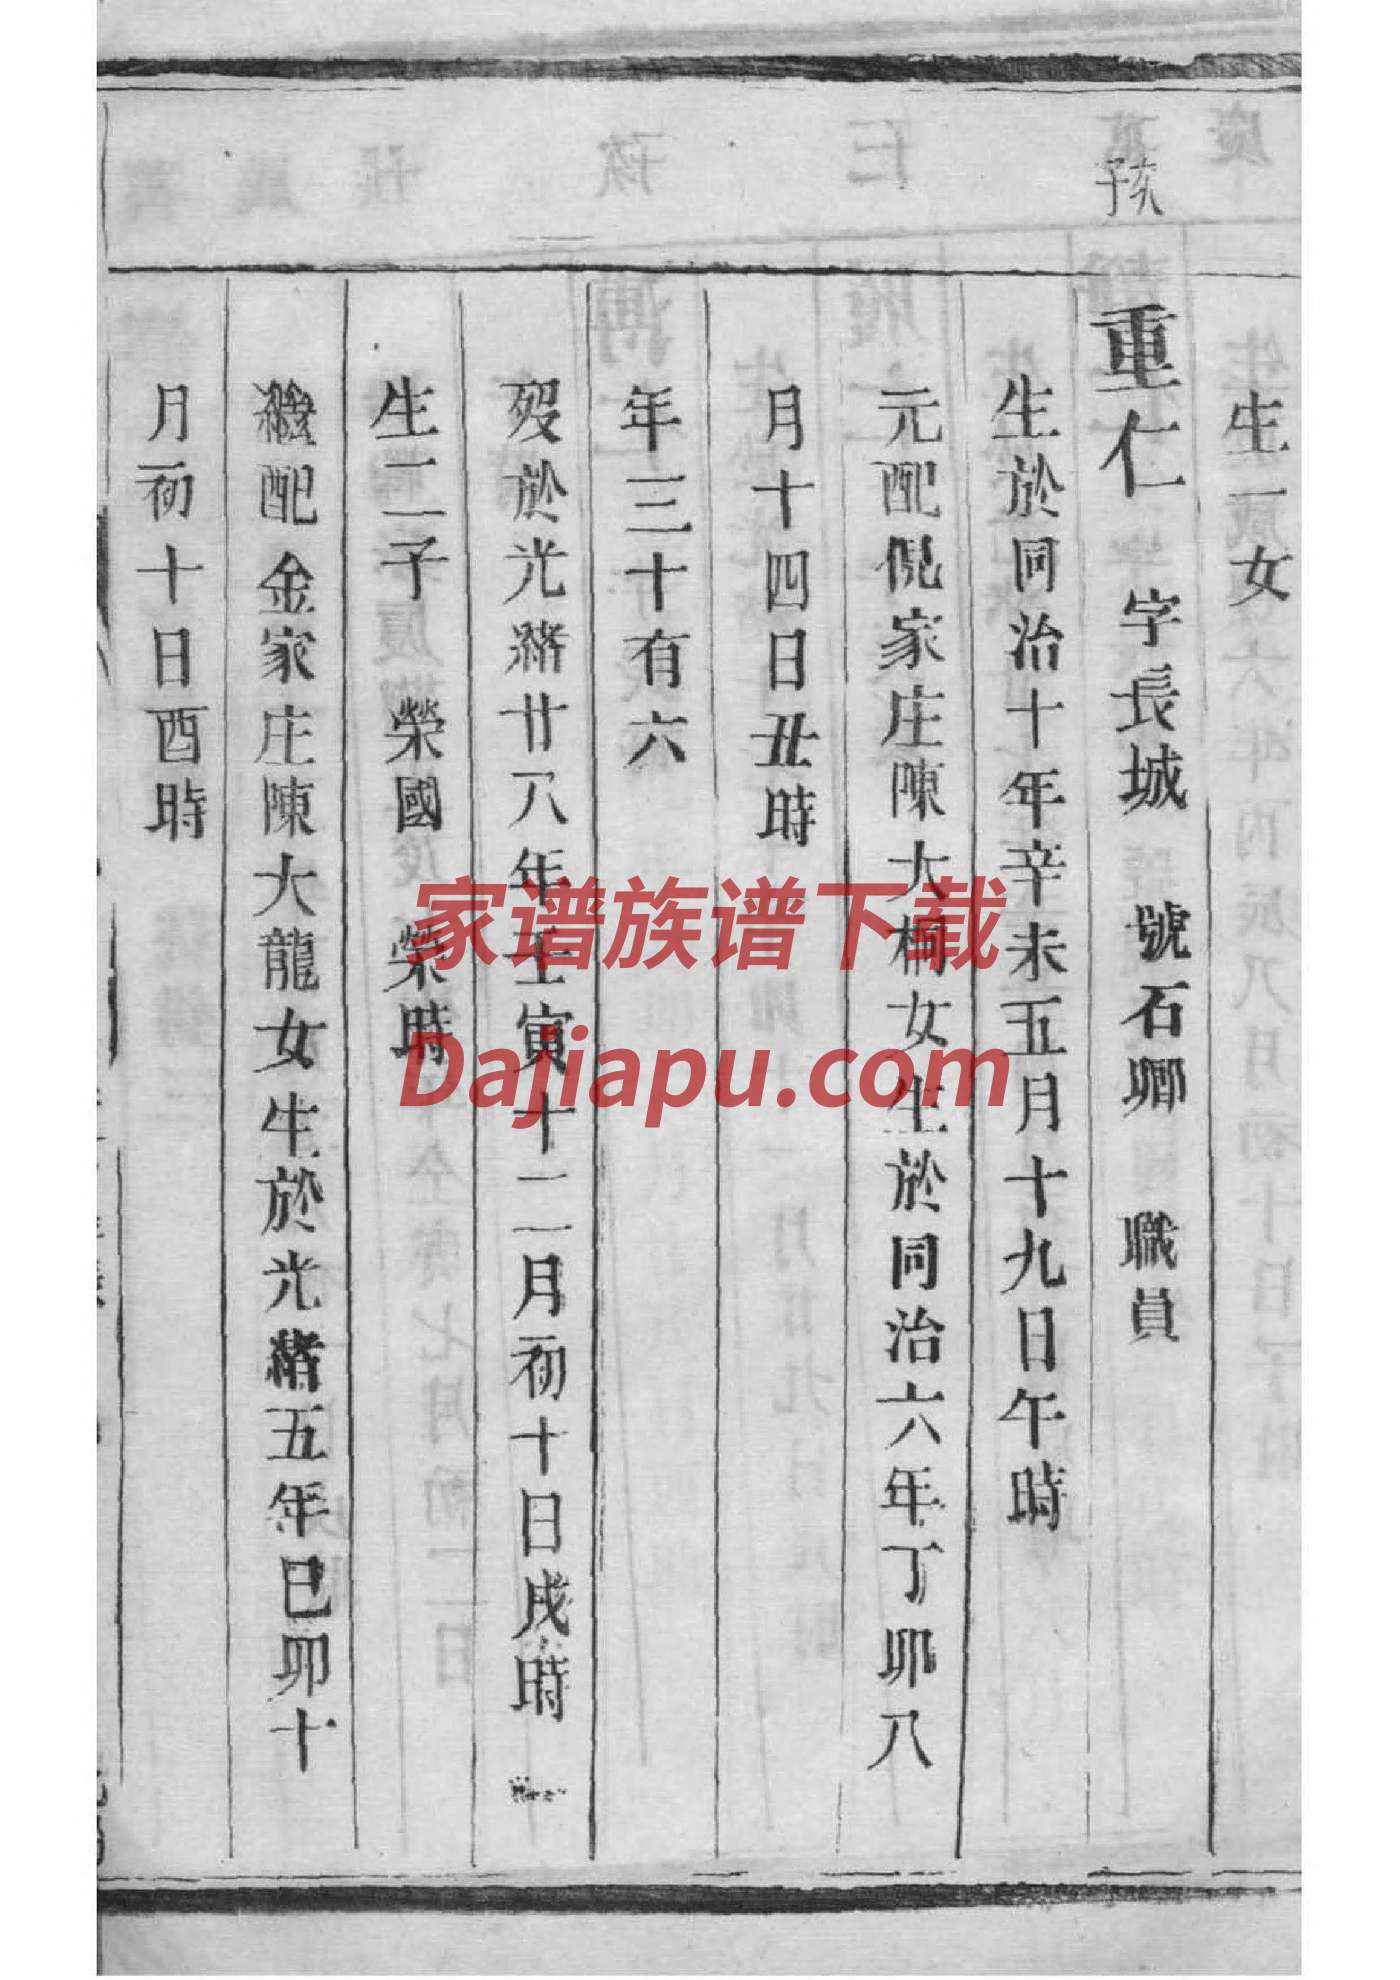 生一女
重仁 字長城 號石卿 職員
生於同治十年辛未五月十九日午時
元配倪家庄陳大桐女生於同治六年丁卯八
月十四日丑時
年三十有六
歿於光緒廿八年壬寅十二月初十日戌時
生二子 榮國 榮時
繼配金家庄陳大龍女生於光緒五年己卯十
月初十日酉時
家谱族谱下载
Dajiapu.com